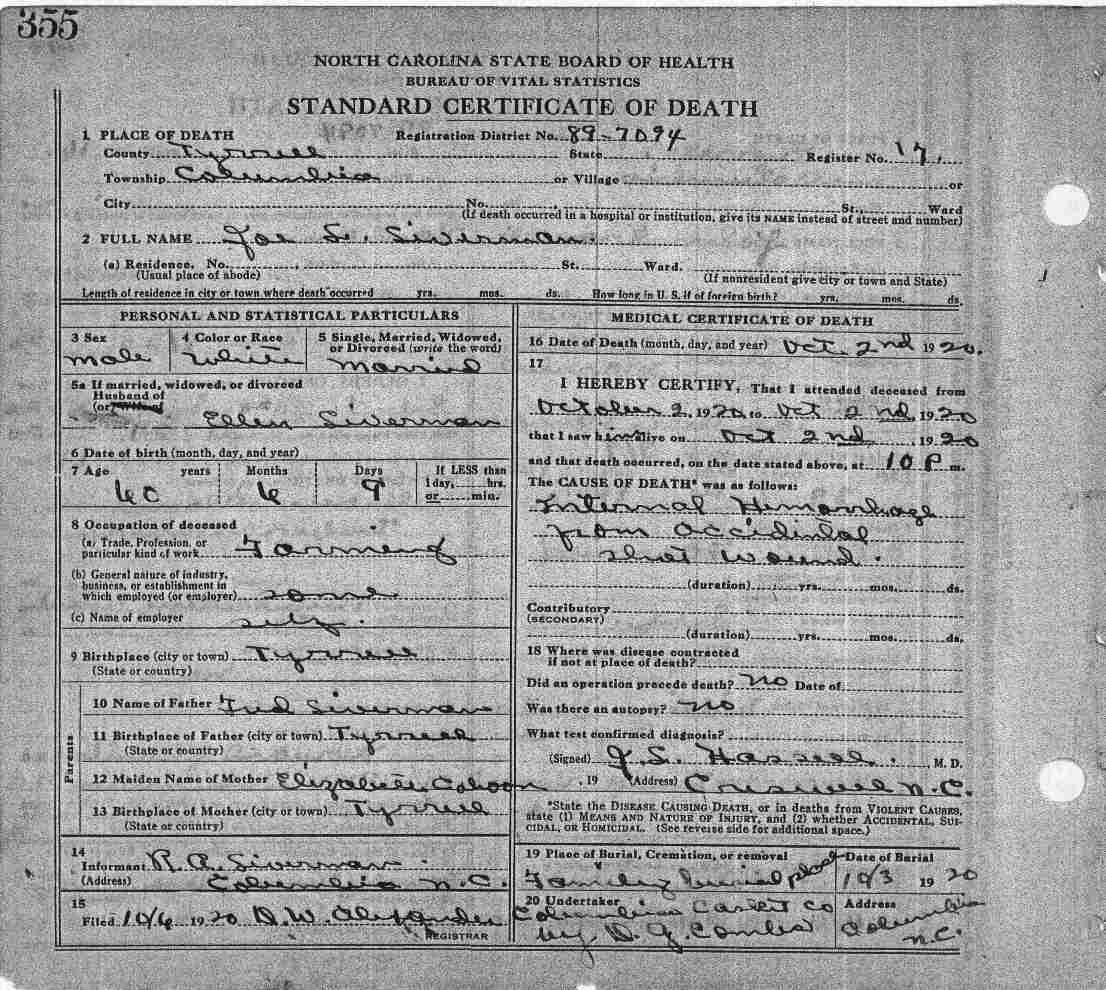 355
NORTH CAROLINA STATE BOARD OF HEALTH
BUREAU OF VITAL STATISTICS
STANDARD CERTIFICATE OF DEATH
1 PLACE OF DEATH Registration District No. 89-7094
County Tyrrell State Register No. 17
Township Columbia or Village or
City No. St., Ward
(If death occurred in a hospital or institution, give its NAME instead of street and number)
2 FULL NAME Joe S. Siverman.
(a) Residence. No. , St. Ward.
(Usual place of abode) (If nonresident give city or town and State)
Length of residence in city or town where death occurred yrs. mos. ds. How long in U. S. if of foreign birth? yrs. mos. ds.
PERSONAL AND STATISTICAL PARTICULARS
3 Sex 4 Color or Race 5 Single, Married, Widowed,
or Divorced (write the word)
Male White Married
5a If married, widowed, or divorced
Husband of
(or) Wife of
Ellen Siverman
6 Date of birth (month, day, and year)
7 Age years Months Days If LESS than
1 day, hrs.
or min.
60 6 9
8 Occupation of deceased
(a) Trade, Profession, or
particular kind of work Farming
(b) General nature of industry,
business, or establishment in
which employed (or employer) same
(c) Name of employer self.
9 Birthplace (city or town) Tyrrell
(State or country)
Parents
10 Name of Father Fred Siverman
11 Birthplace of Father (city or town) Tyrrell
(State or country)
12 Maiden Name of Mother Elizabeth Cahoon
13 Birthplace of Mother (city or town) Tyrrell
(State or country)
14
Informant R. A. Siverman.
(Address) Columbia N.C.
15
Filed 10/6, 1920 D. W. Alexander
REGISTRAR
MEDICAL CERTIFICATE OF DEATH
16 Date of Death (month, day, and year) Oct. 2nd 1920.
17
I HEREBY CERTIFY, That I attended deceased from
October 2, 1920 to Oct 2nd, 1920
that I saw him alive on Oct 2nd, 1920
and that death occurred, on the date stated above, at 10 P m.
The CAUSE OF DEATH* was as follows:
Internal Hemorrhage
from accidental
shot wound.
(duration) yrs. mos. ds.
Contributory
(SECONDARY)
(duration) yrs. mos. ds.
18 Where was disease contracted
if not at place of death?
Did an operation precede death? No Date of
Was there an autopsy? No
What test confirmed diagnosis?
(Signed) J. S. Hassell. M. D.
, 19 (Address) Creswell N.C.
*State the DISEASE CAUSING DEATH, or in deaths from VIOLENT CAUSES,
state (1) MEANS AND NATURE OF INJURY, and (2) whether ACCIDENTAL, SUI-
CIDAL, OR HOMICIDAL. (See reverse side for additional space.)
19 Place of Burial, Cremation, or removal Date of Burial
Family burial plot 10/3 1920
20 Undertaker Address
Columbia Casket Co
by D. G. Combs
Columbia
N.C.